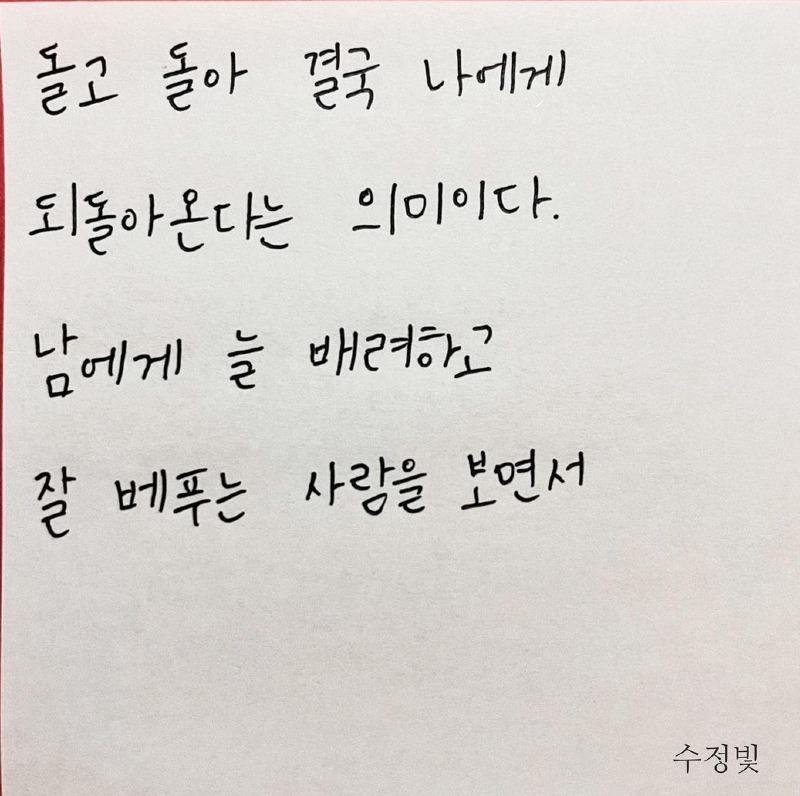 돌고 돌아 결국 나에게
되돌아온다는 의미이다.
남에게 늘 배려하고
잘 베푸는 사람을 보면서
수정빛